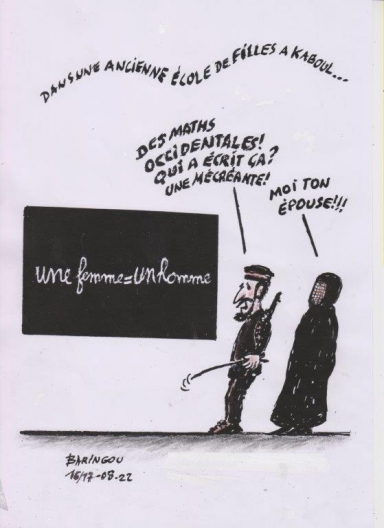 DANS UNE ANCIENNE ÉCOLE DE FILLES A KABOUL...
DES MATHS
OCCIDENTALES!
QUI A ÉCRIT ÇA?
UNE MÉCRÉANTE!
MOI TON
ÉPOUSE!!!
une femme=un homme
BARINGOU
16/17-08-22